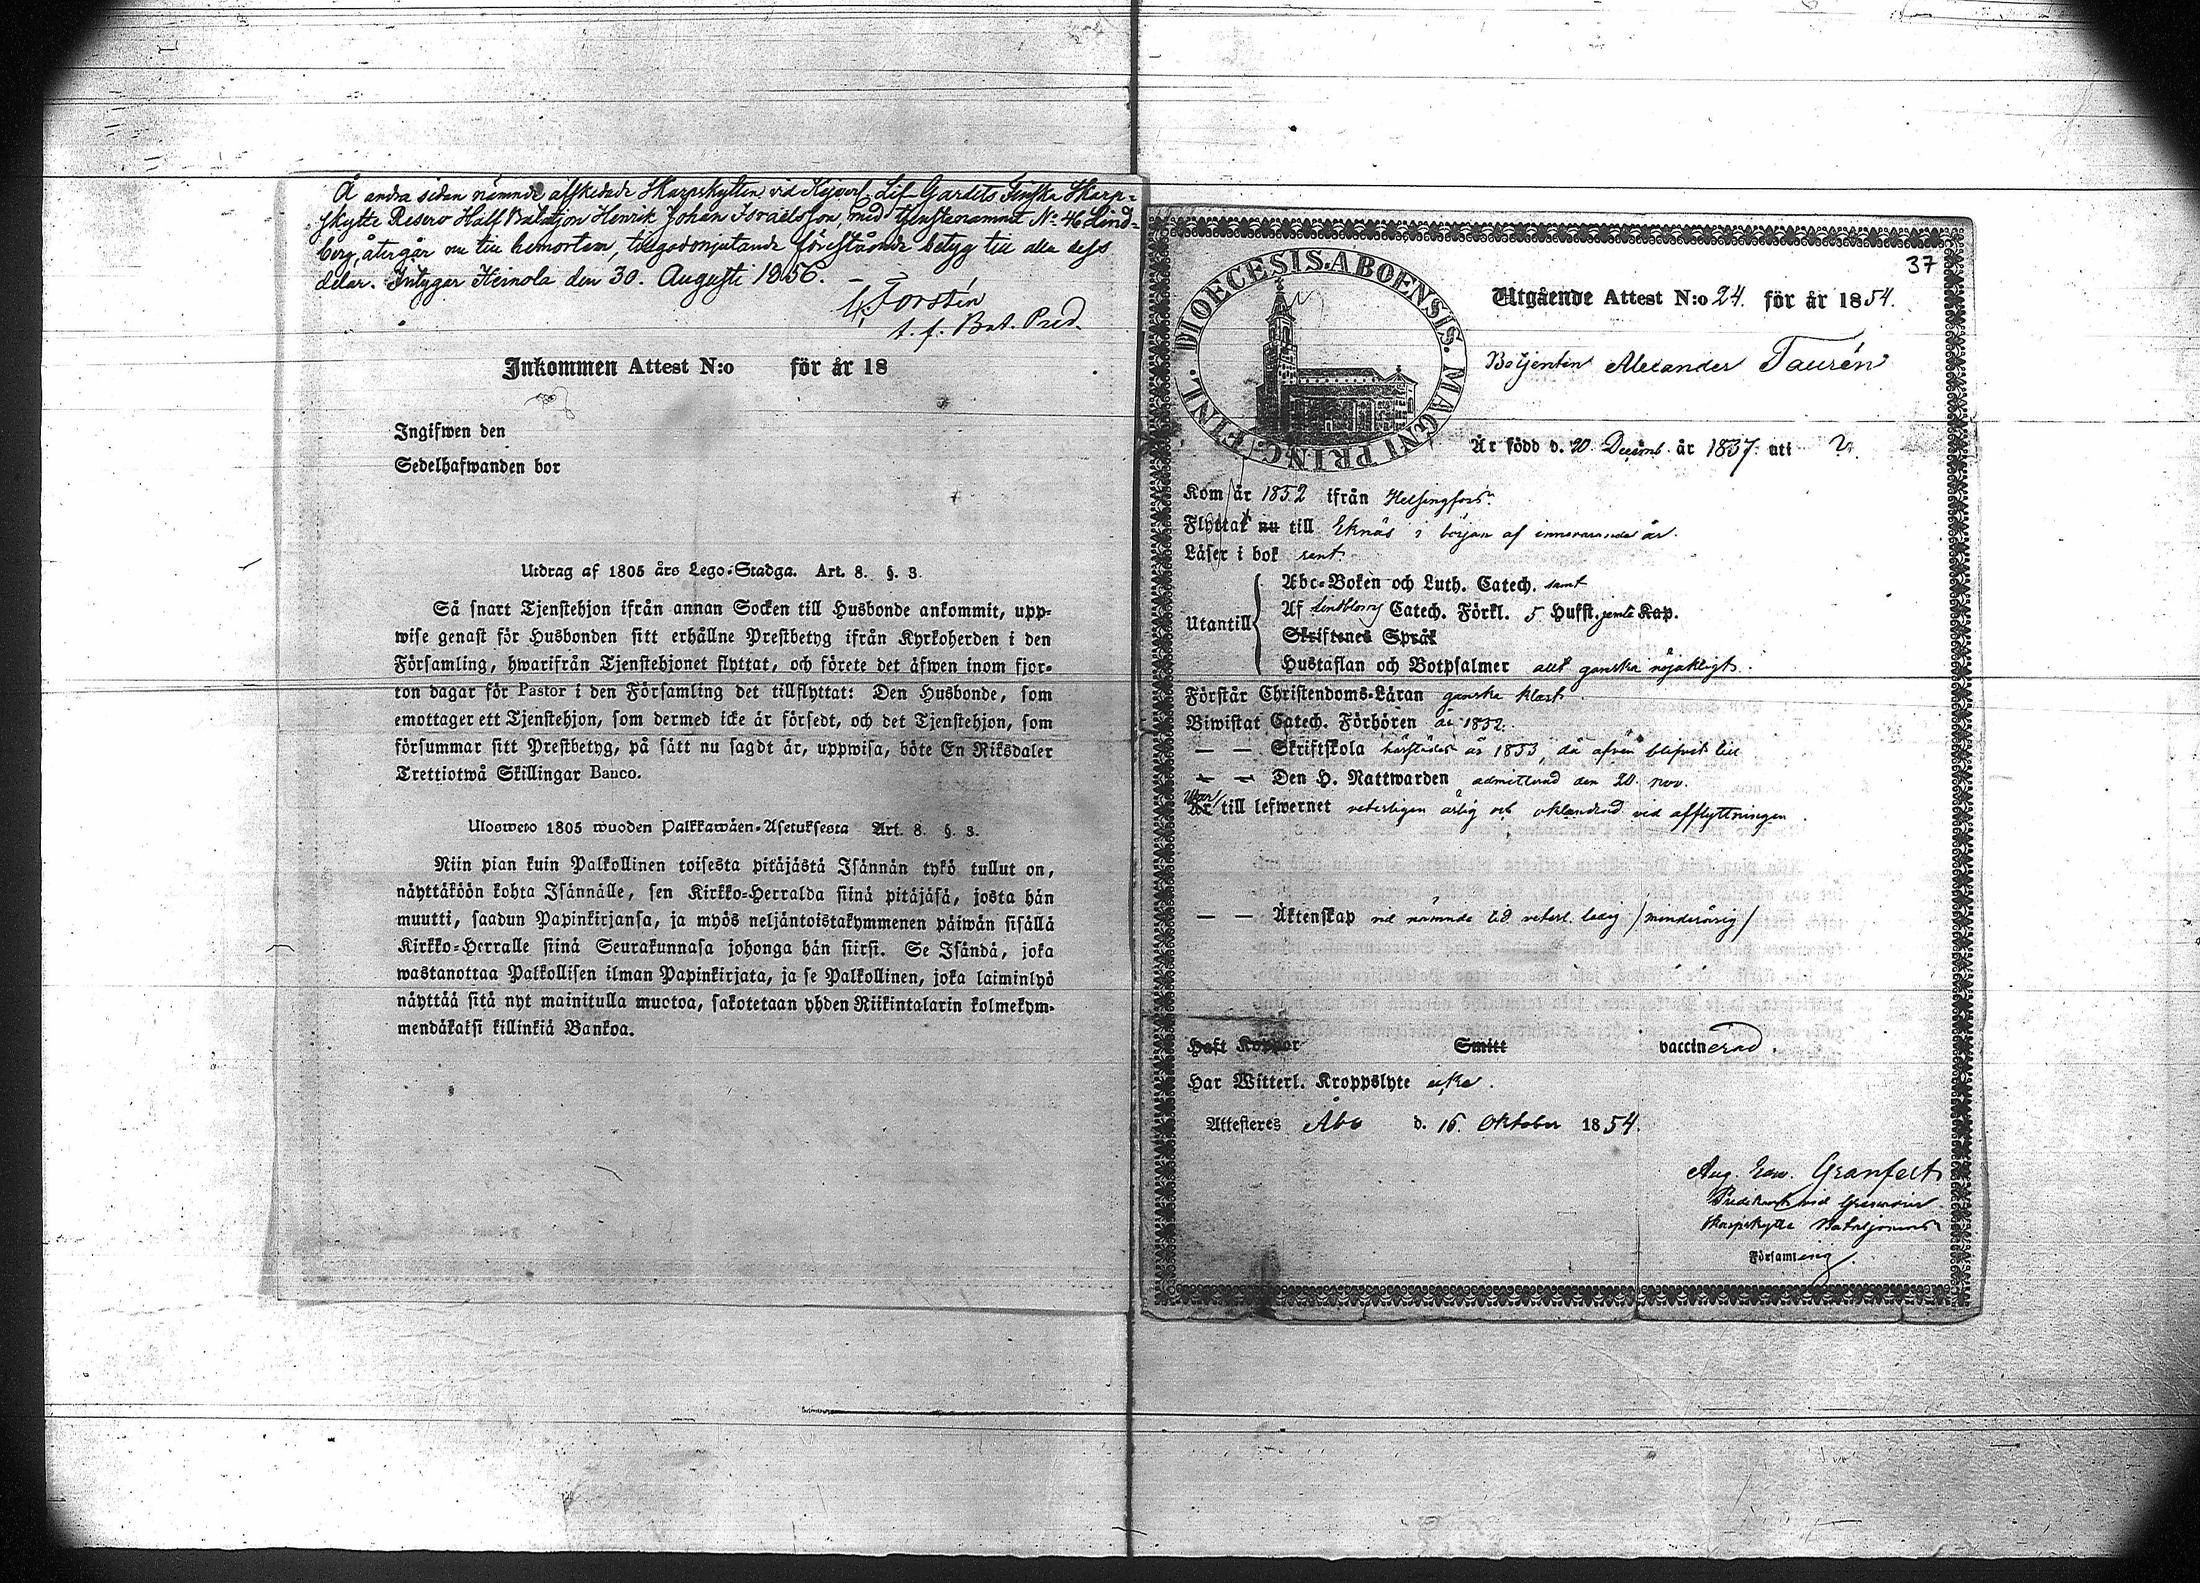 Å andra sidan nämnde afskedade Skarpskytten vid Kejserl. Lif Gardets Finska Skarp-
skytte Reserv Half Bataljon Henrik Johan Israelsson, med tjenstenamnet No 46 Lind-
berg, återgår nu till hemorten, tillgodonjutande förestående betyg till alla dess
delar. Intygar Heinola den 30. Augusti 1856.
Forstén
t. f. Bat. Pred.
Inkommen Attest N:o för år 18
Ingifwen den
Sedelhafwanden bor
Utdrag af 1805 års Lego-Stadga. Art. 8. §. 3.
Så snart Tjenstehjon ifrån annan Socken till Husbonde ankommit, upp-
wise genast för Husbonden sitt erhållne Prestbetyg ifrån Kyrkoherden i den
Församling, hwarifrån Tjenstehjonet flyttat, och förete det äfwen inom fjor-
ton dagar för Pastor i den Församling det tillflyttat: Den Husbonde, som
emottager ett Tjenstehjon, som dermed icke är försedt, och det Tjenstehjon, som
försummar sitt Prestbetyg, på sätt nu sagdt är, uppwisa, böte En Riksdaler
Trettiotwå Skillingar Banco.
Ulosweto 1805 wuoden Palkkawäen-Asetuksesta Art. 8. §. 3.
Niin pian kuin Palkollinen toisesta pitäjästä Isännän tykö tullut on,
näyttäköön kohta Isännälle, sen Kirkko-Herralda siinä pitäjäsä, josta hän
muutti, saadun Papinkirjansa, ja myös neljäntoistakymmenen päiwän sisällä
Kirkko-Herralle siinä Seurakunnasa johonga hän siirsi. Se Isändä, joka
wastanottaa Palkollisen ilman Papinkirjata, ja se Palkollinen, joka laiminlyö
näyttää sitä nyt mainitulla muotoa, sakotetaan yhden Riikintalarin kolmekym-
mendäkaksi killinkiä Bankoa.
37
DIOECESIS.ABOENSIS.MAGNI PRINC.FINL.
Utgående Attest N:o 24. för år 1854.
Betjenten Alexander Taurén
Är född d. 20 Decemb. år 1837. uti ?
Kom år 1852 ifrån Helsingfors
Flyttat nu till Eknäs i början af innevarande år.
Läser i bok rent
Utantill
Abc-Boken och Luth. Catech. samt
Af Lindbloms Catech. Förkl. 5 Hufst. jemte Kap.
Skriftenes Språk
Hustaflan och Botpsalmer allt ganska nöjaktigt.
Förstår Christendoms-Läran ganska klart.
Biwistat Catech. Förhören år 1852.
— — Skriftskola härstädes år 1853, då äfven blifvit till
— — Den H. Nattwarden admitterad den 20. nov.
War/
Är till lefwernet veterligen ärlig och oklandrad vid afflyttningen.
— — Äktenskap vid nämnde tid veterl. ledig /minderårig/
Haft Koppor Smitt vaccinerad.
Har Witterl. Kroppslyte icke.
Attesteres Åbo d. 16. Oktober 1854.
Aug. Edw. Granfelt
Predikant vid Grenadier
Skarpskytte Bataljonens
Församling.